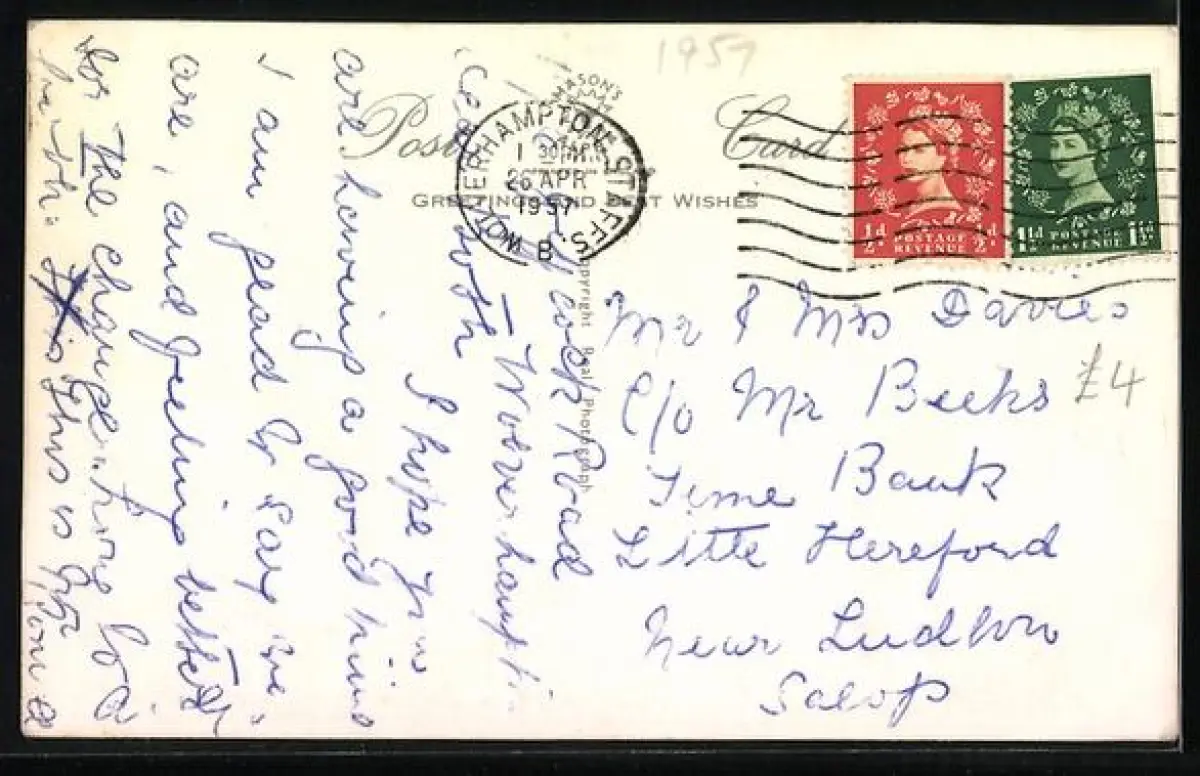 1957
MASON'S
Post Card
GREETINGS AND BEST WISHES
WOLVERHAMPTON STAFFS.
1 30 PM
26 APR
1957
B
½d POSTAGE REVENUE ½d
1½d POSTAGE REVENUE 1½d
Copyright Real Photograph
Mr & Mrs Davies
C/o Mr Beeks
£4
Teme Bank
Little Hereford
Near Ludlow
Salop
cock Road
Wolverhampt
both I hope you
are having a good time
I am glad to say we
are, and feeling better
for The change, hope
This is